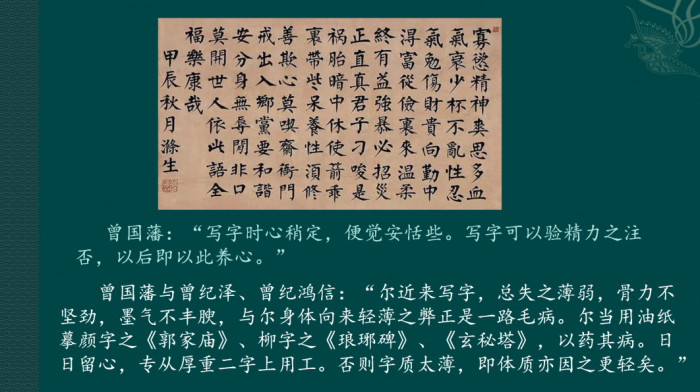 寡慾精神爽思多血
氣衰少杯不亂性忍
氣勉傷財貴向勤中
淂富從儉裏來温柔
終有益強暴必招災
正直真君子刁唆是
祸胎暗中休使箭乖
裏帶些呆養性湏修
善欺心莫喫齋衙門
戒出入鄉黨要和諧
安分身無辱閒非口
莫開世人依此語全
福樂康哉
甲辰秋月滌生
曾国藩：“写字时心稍定，便觉安恬些。写字可以验精力之注
否，以后即以此养心。”
曾国藩与曾纪泽、曾纪鸿信：“尔近来写字，总失之薄弱，骨力不
坚劲，墨气不丰腴，与尔身体向来轻薄之弊正是一路毛病。尔当用油纸
摹颜字之《郭家庙》、柳字之《琅琊碑》、《玄秘塔》，以药其病。日
日留心，专从厚重二字上用工。否则字质太薄，即体质亦因之更轻矣。”